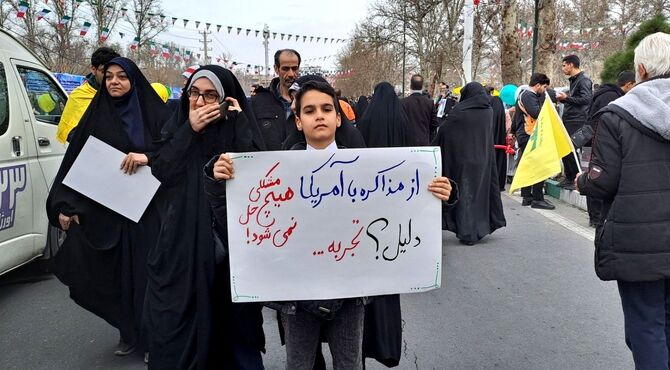 از مذاکره با آمریکا هیچ مشکلی حل نمی شود!
دلیل؟ تجربه...